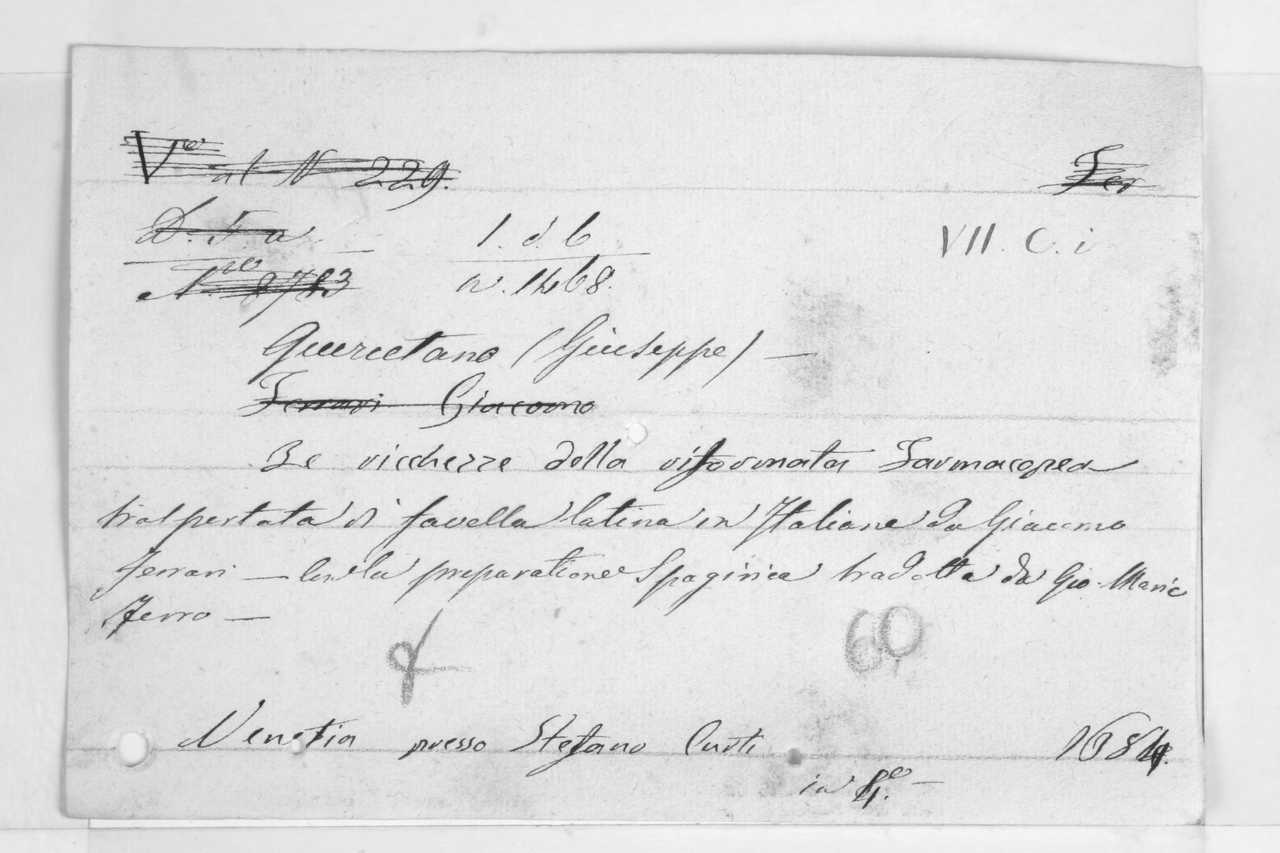 Vo al N 229. Fer
D. F a 1. d. 6 VII. C. i
Nro 8783 a. 1468.
Quercetano (Giuseppe) —
Ferrari Giacomo
Le ricchezze della riformata Farmacopea
trasportata di favella latina in Italiano da Giacomo
Ferrari — con la preparatione Spagirica tradotta da Gio. Maria
Ferro —
60
Venetia presso Stefano Curti 1684.
in 4o. —